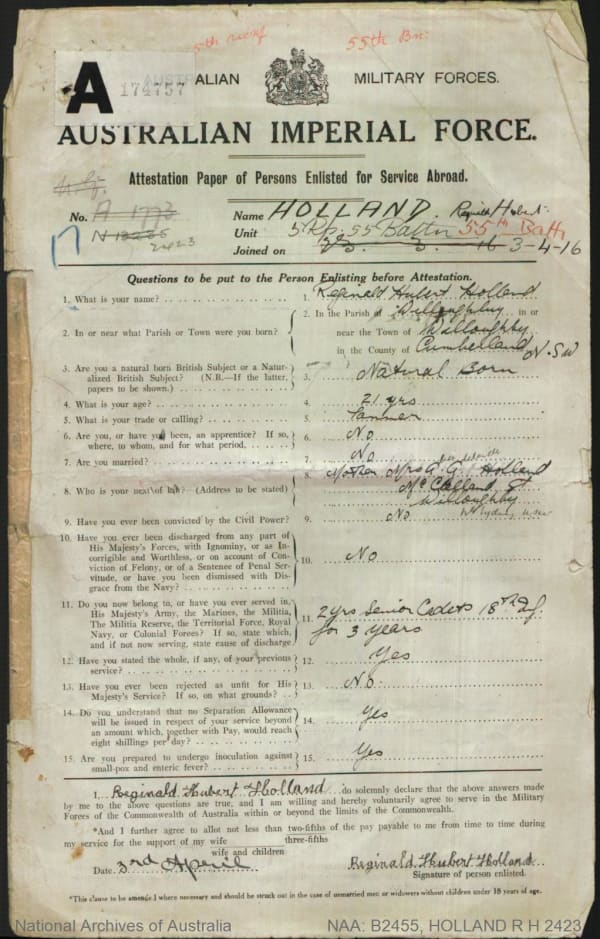 55th Bn:
A
174757
AUSTRALIAN MILITARY FORCES.
AUSTRALIAN IMPERIAL FORCE.
Attestation Paper of Persons Enlisted for Service Abroad.
No. A 1773
2423
Name HOLLAND. Reginald Hubert.
Unit 5 Rfs. 55 Battn 55th Battn
Joined on 3-4-16
Questions to be put to the Person Enlisting before Attestation.
1. What is your name? 1. Reginald Hubert Holland
2. In or near what Parish or Town were you born? 2. In the Parish of Willoughby in or
near the Town of Willoughby
in the County of Cumberland N.S.W
3. Are you a natural born British Subject or a Natur-
alized British Subject? (N.B.—If the latter,
papers to be shown.) 3. Natural Born
4. What is your age? 4. 21 yrs
5. What is your trade or calling? 5. Tanner
6. Are you, or have you been, an apprentice? If so,
where, to whom, and for what period. 6. No
7. Are you married? 7. No
8. Who is your next of kin? (Address to be stated) 8. Mother Mrs A. G. Holland
McClelland St
Willoughby
Nth Sydney NSW
9. Have you ever been convicted by the Civil Power? 9. No
10. Have you ever been discharged from any part of
His Majesty's Forces, with Ignominy, or as In-
corrigible and Worthless, or on account of Con-
viction of Felony, or of a Sentence of Penal Ser-
vitude, or have you been dismissed with Dis-
grace from the Navy? 10. No
11. Do you now belong to, or have you ever served in,
His Majesty's Army, the Marines, the Militia,
The Militia Reserve, the Territorial Force, Royal
Navy, or Colonial Forces? If so, state which,
and if not now serving, state cause of discharge 11. 2 yrs Senior Cadets 18th Inf
for 3 years
12. Have you stated the whole, if any, of your previous
service? 12. Yes
13. Have you ever been rejected as unfit for His
Majesty's Service? If so, on what grounds? 13. No.
14. Do you understand that no Separation Allowance
will be issued in respect of your service beyond
an amount which, together with Pay, would reach
eight shillings per day? 14. Yes
15. Are you prepared to undergo inoculation against
small-pox and enteric fever? 15. Yes
I, Reginald Hubert Holland do solemnly declare that the above answers made
by me to the above questions are true, and I am willing and hereby voluntarily agree to serve in the Military
Forces of the Commonwealth of Australia within or beyond the limits of the Commonwealth.
*And I further agree to allot not less than two-fifths of the pay payable to me from time to time during
three-fifths
my service for the support of my wife
wife and children
Date. 3rd April
Reginald Hubert Holland
Signature of person enlisted.
*This clause to be amended where necessary and should be struck out in the case of unmarried men or widowers without children under 18 years of age.
National Archives of Australia NAA: B2455, HOLLAND R H 2423